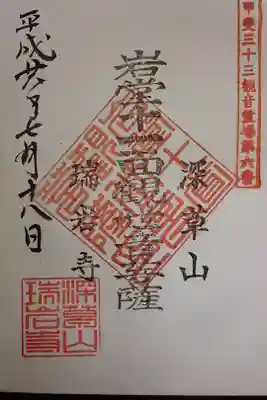 甲斐三十三観音霊場第六番
深草山
岩堂十一面観世音菩薩
瑞岩寺
平成廿八年七月十八日
深草山
瑞岩寺